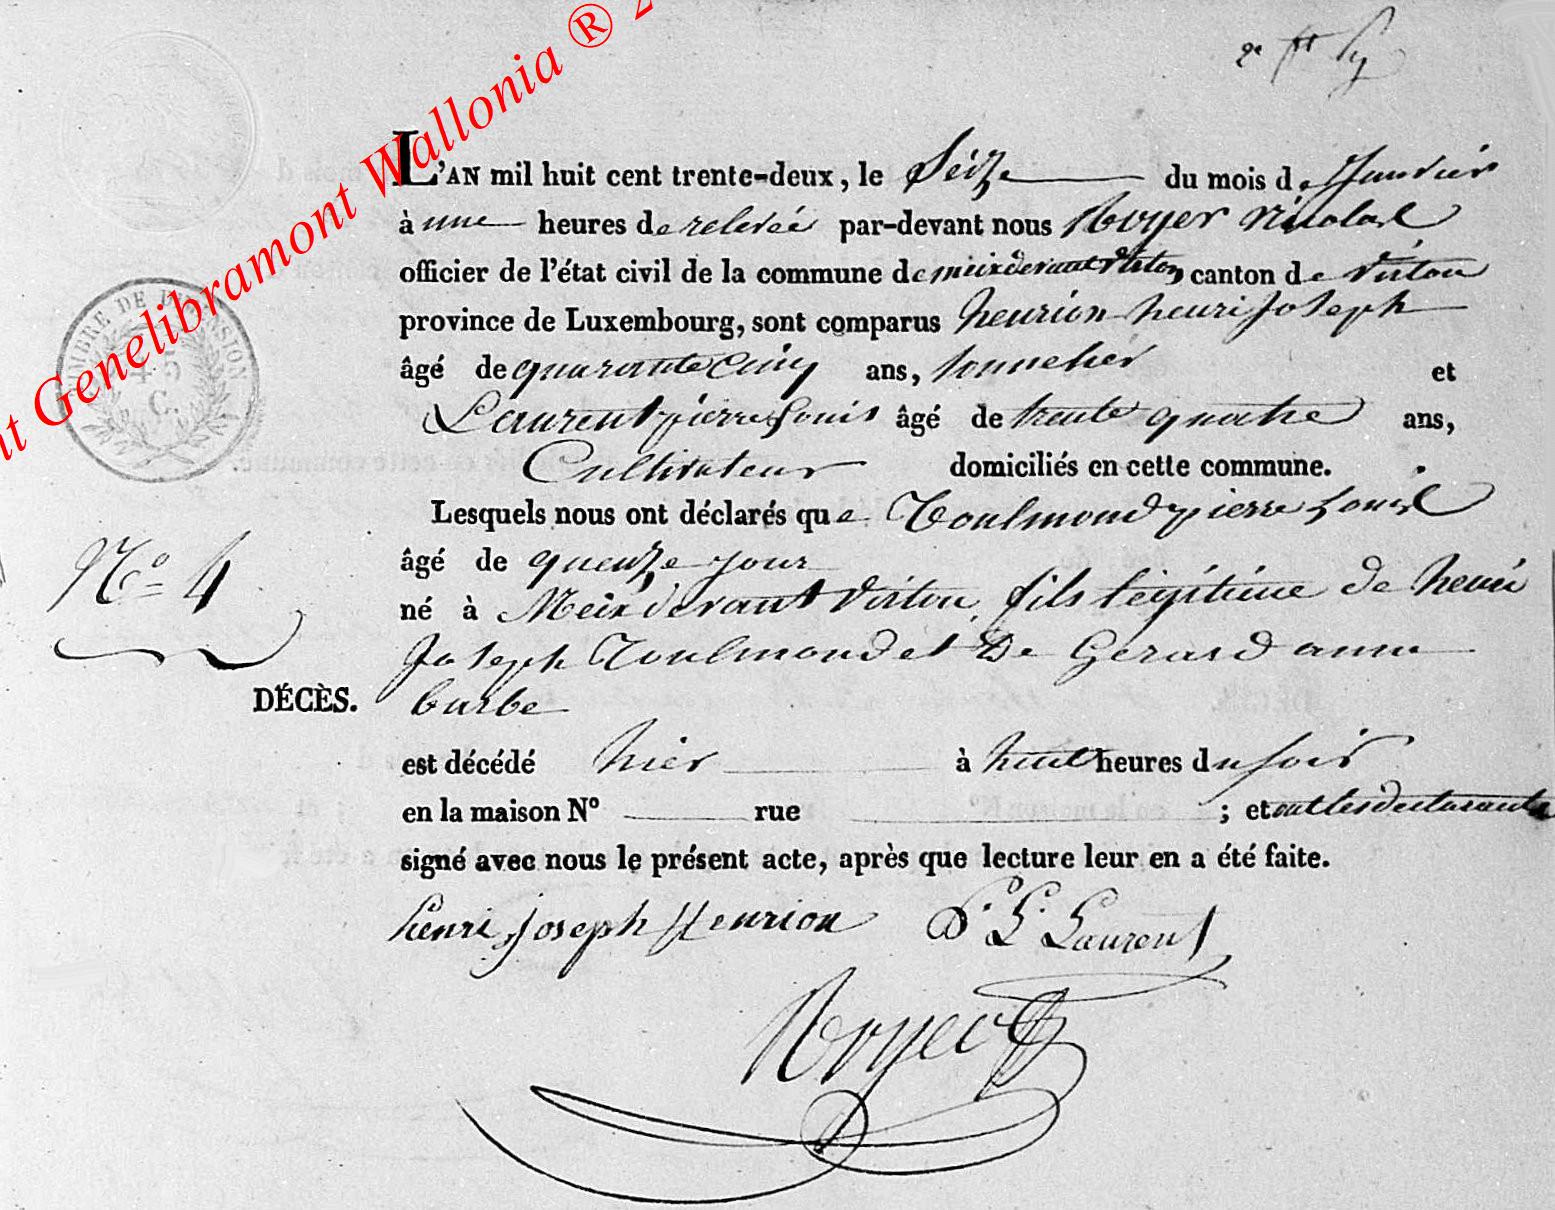 Genelibramont Wallonia ® 2
L'AN mil huit cent trente-deux, le Seize du mois de Janvier
à une heures de relevée par-devant nous Royer Nicolas
officier de l'état civil de la commune de meix devant Virton canton de Virton
province de Luxembourg, sont comparus henrion henri Joseph
âgé de quarante Cinq ans, tonnelier et
Laurent pierre Louis âgé de trente quatre ans,
Cultivateur domiciliés en cette commune.
Lesquels nous ont déclarés que Toulmond pierre Louis
âgé de queuze jour
né à Meix devant Virton, fils légitime de henri
Joseph Toulmond et De Gerard anne
barbe
est décédé hier à huit heures du soir
en la maison N° rue ; et ont les declarants
signé avec nous le présent acte, après que lecture leur en a été faite.
N° 4
DÉCÈS.
TIMBRE DE DIMENSION
45
C.
henri joseph Henrion P. L. Laurent
Royer